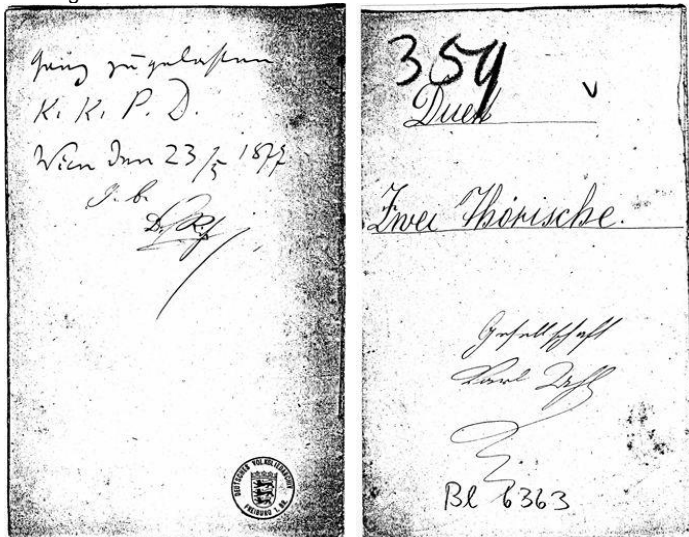 ganz zugelassen
K. K. P. D.
Wien den 23/5 1877
DEUTSCHES VOLKSLIEDARCHIV
FREIBURG I. BR.
354
Duett
Zwei Thörische.
Gesellschaft
Karl
Bl 6363